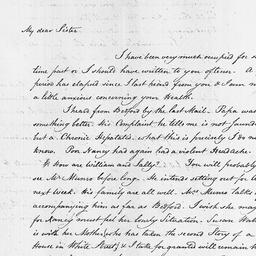 My dear Sister
I have been very much occupied for s
time past or I should have written to you often. A
period has elapsed since I last heard from you & I am n
a little anxious concerning your Health.
I heard from Bedford by the last Mail. Papa was
something better. His Complaint he tells me is not Jaund
but a Chronic Hepatitis. what this is precisely I do no
know. Poor Nancy had again had a violent Headache.
How are William and Sally? You will probably
see Mr Munro before long. He intends setting out for
next Week. His family are all well. Mrs Munro talks
accompanying him as far as Bedford. I wish she may
for Nancy must feel her lonely Situation. Susan Wat
is with her Mother, who has taken the second Story of a
House in White Street, & I take for granted will remain